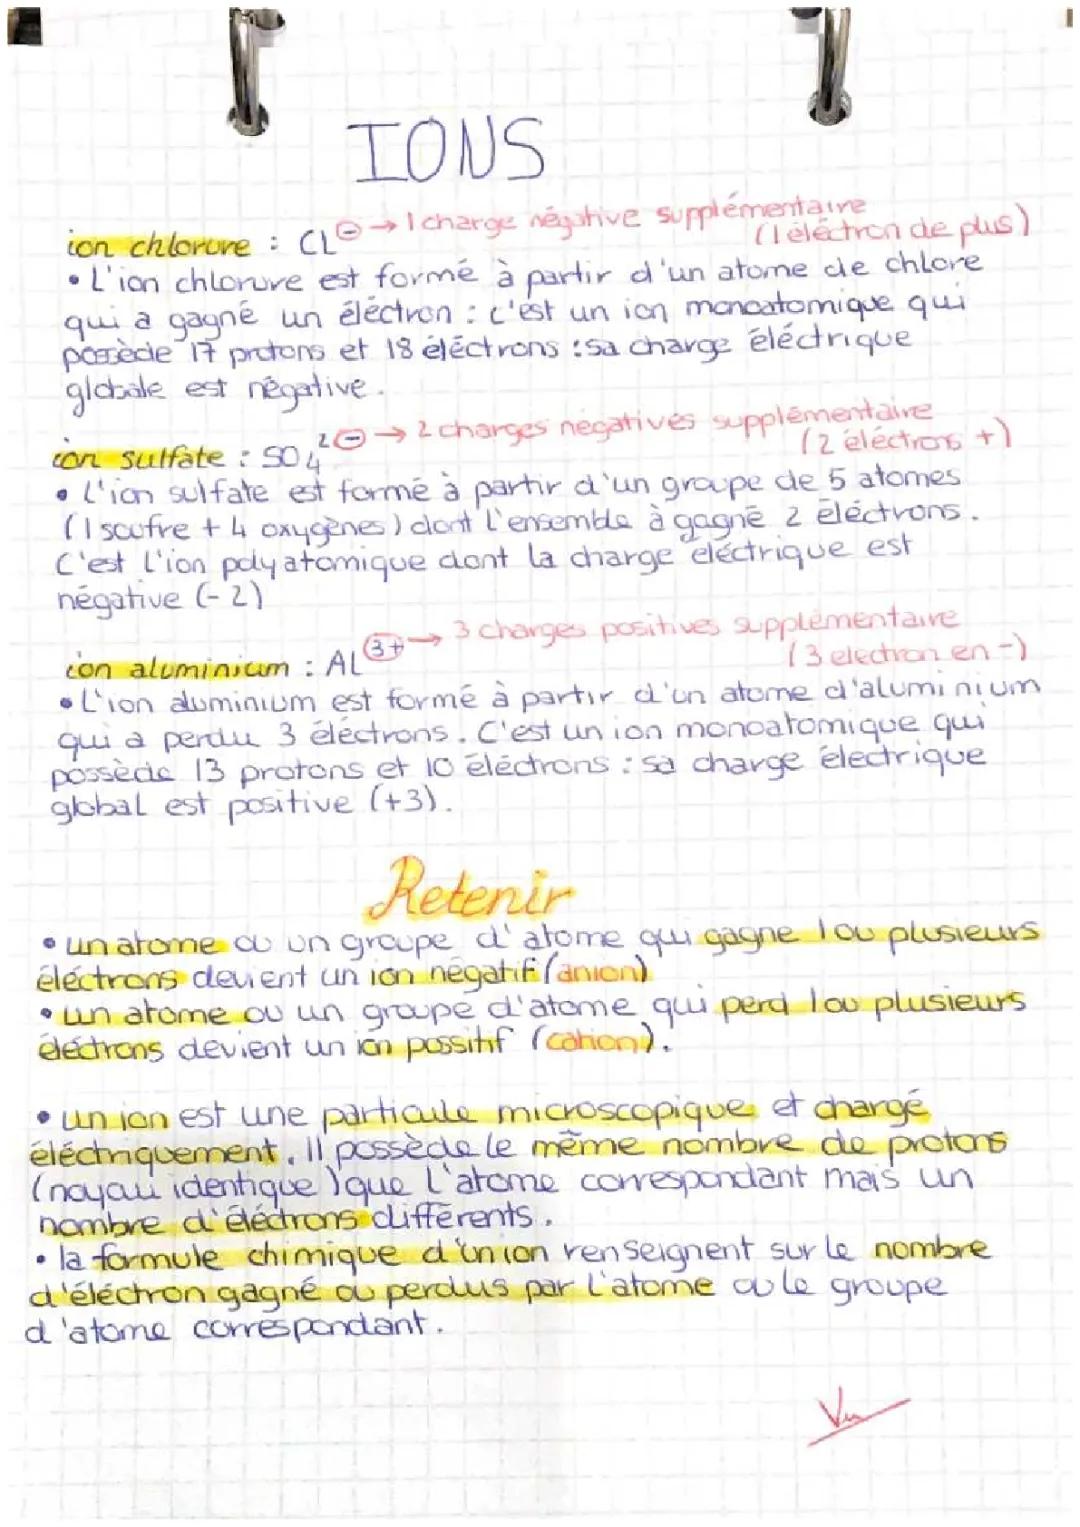 IONS
ion chlorure : Cl⊖ → 1 charge négative supplémentaire
(1 éléctron de plus)
• L'ion chlorure est formé à partir d'un atome de chlore
qui a gagné un éléctron : c'est un ion monoatomique qui
possède 17 protons et 18 éléctrons : sa charge éléctrique
globale est négative.
ion sulfate : SO₄²⊖ → 2 charges négatives supplémentaire
(2 éléctrons +)
• L'ion sulfate est formé à partir d'un groupe de 5 atomes
(1 soufre + 4 oxygènes) dont l'ensemble à gagné 2 éléctrons.
C'est l'ion polyatomique dont la charge éléctrique est
négative (-2)
ion aluminium : Al³⁺ → 3 charges positives supplémentaire
(3 electron en -)
• L'ion aluminium est formé à partir d'un atome d'aluminium
qui a perdu 3 éléctrons. C'est un ion monoatomique qui
possède 13 protons et 10 éléctrons : sa charge électrique
global est positive (+3).
Retenir
• un atome ou un groupe d'atome qui gagne 1 ou plusieurs
éléctrons devient un ion négatif (anion)
• un atome ou un groupe d'atome qui perd 1 ou plusieurs
éléctrons devient un ion possitif (cation).
• un ion est une particule microscopique et chargé
éléctriquement. Il possède le même nombre de protons
(noyau identique) que l'atome correspondant mais un
nombre d'éléctrons différents.
• la formule chimique d'un ion renseignent sur le nombre
d'éléctron gagné ou perdus par l'atome ou le groupe
d'atome correspondant.
Vu